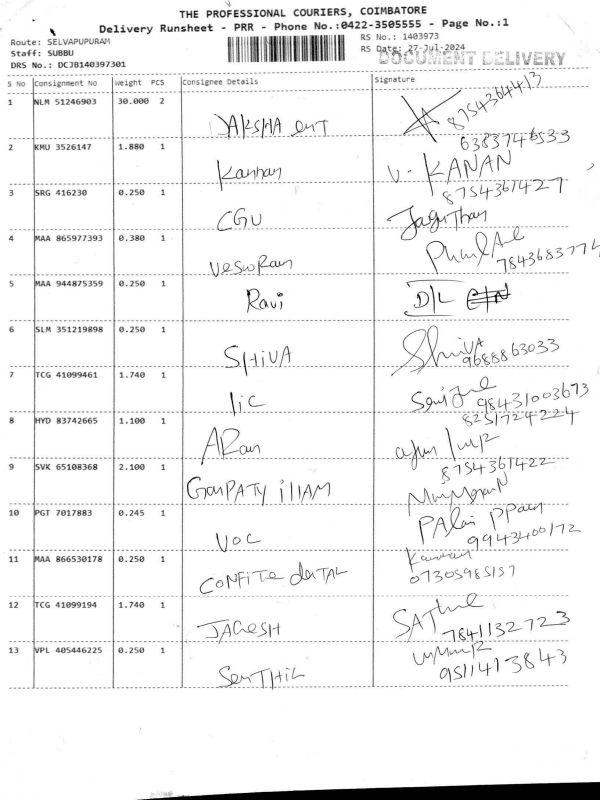 THE PROFESSIONAL COURIERS, COIMBATORE
Delivery Runsheet - PRR - Phone No.:0422-3505555 - Page No.:1
Route: SELVAPUPURAM
RS No.: 1403973
Staff: SUBBU
RS Date: 27-Jul-2024
DRS No.: DCJB140397301
DOCUMENT DELIVERY
S No Consignment No Weight PCS Consignee Details Signature
1 NLM 51246903 30.000 2 DAKSHA ENT 8754364413
6383746533
2 KMU 3526147 1.880 1 Kannan V. KANAN
8754367427
3 SRG 416230 0.250 1 CGU
4 MAA 865977393 0.380 1
7843683774
5 MAA 944875359 0.250 1 Ravi D/L
6 SLM 351219898 0.250 1 SHIVA ShivA
9688863033
7 TCG 41099461 1.740 1 lic
98431003673
8 HYD 83742665 1.100 1
8251724224
9 SVK 65108368 2.100 1 GANPATY illAM 8754361422
10 PGT 7017883 0.245 1 VOC
9943400172
11 MAA 866530178 0.250 1 CONFITE deNTAL
07305985157
12 TCG 41099194 1.740 1 JAGeSH
7841132723
13 VPL 405446225 0.250 1 SenTHiL
9511413843